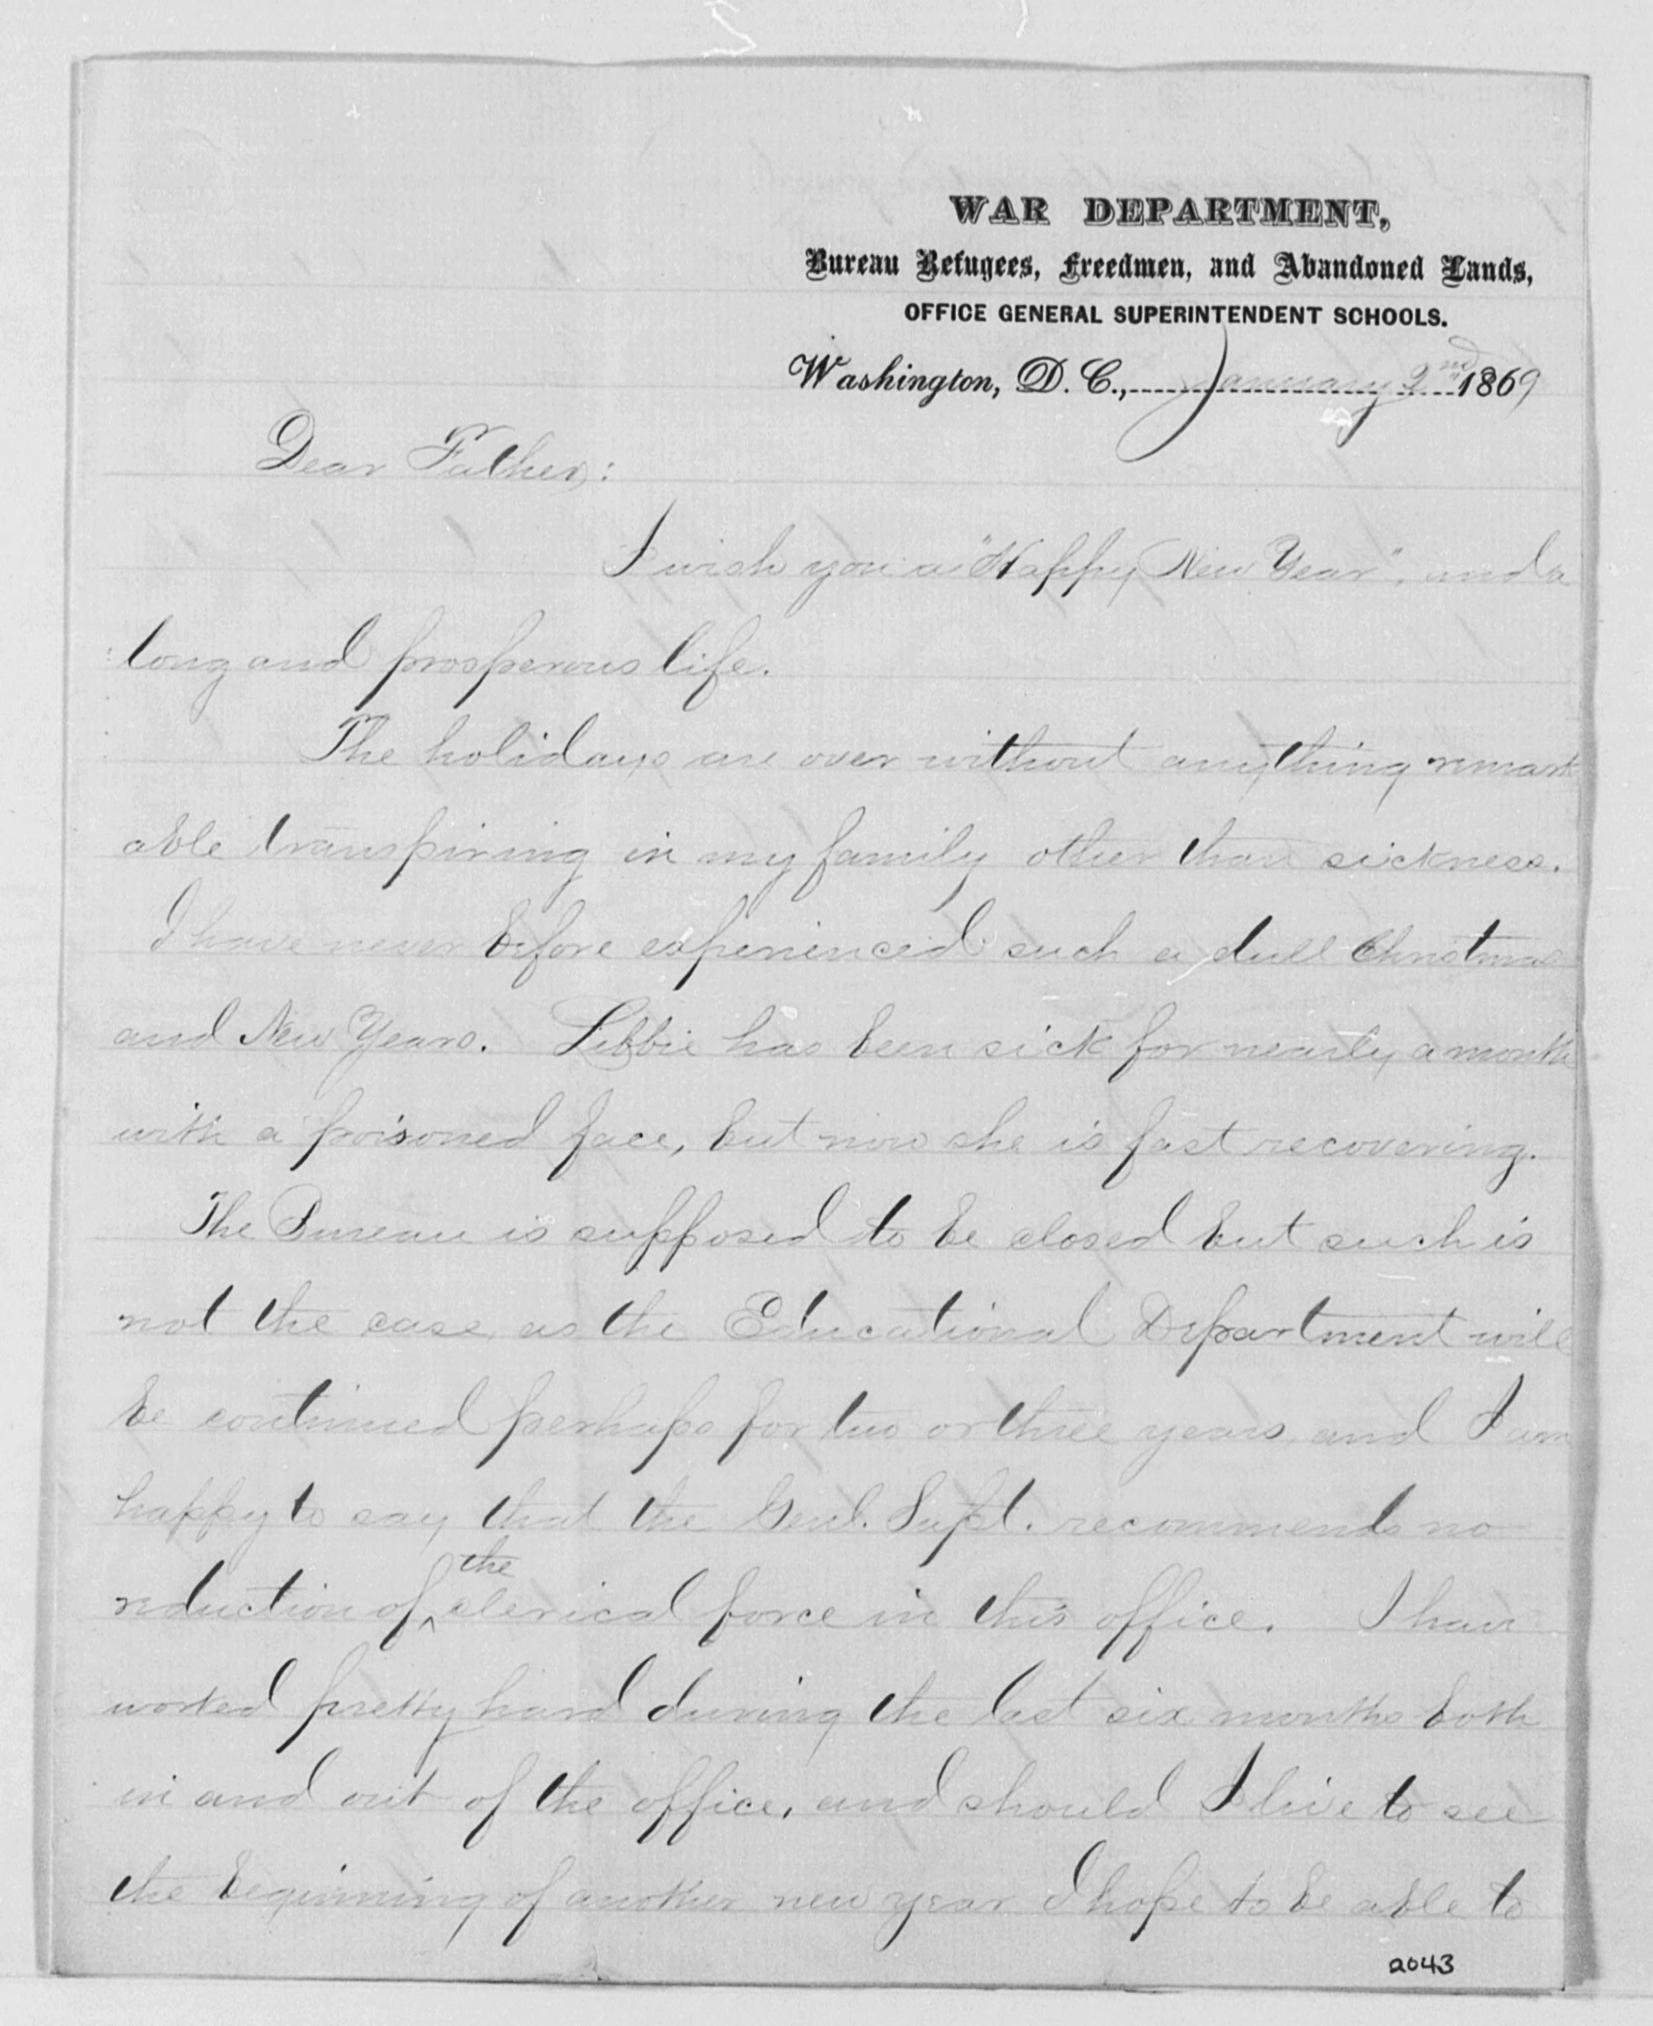 WAR DEPARTMENT,
Bureau Refugees, Freedmen, and Abandoned Lands,
OFFICE GENERAL SUPERINTENDENT SCHOOLS.
Washington, D. C., January 2nd 1869
Dear Father:
I wish you a "Happy New Year", and a
long and prosperous life.
The holidays are over without anything remark
able transpiring in my family other than sickness.
I have never before experienced such a dull Christmas
and New Years. Libbie has been sick for nearly a month
with a poisoned face, but now she is fast recovering.
The Bureau is supposed to be closed but such is
not the case, as the Educational Department will
be continued perhaps for two or three years, and I am
happy to say that the Genl. Supt. recommends no
reduction of ^the clerical force in this office. I have
worked pretty hard during the last six months both
in and out of the office, and should I live to see
the beginning of another new year I hope to be able to
2043